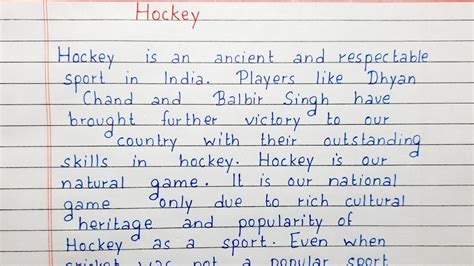 Hockey
Hockey is an ancient and respectable
sport in India. Players like Dhyan
Chand and Balbir Singh have
brought further victory to our
country with their outstanding
skills in hockey. Hockey is our
natural game. It is our national
game only due to rich cultural
heritage and popularity of
Hockey as a sport. Even when
cricket was not a popular sport